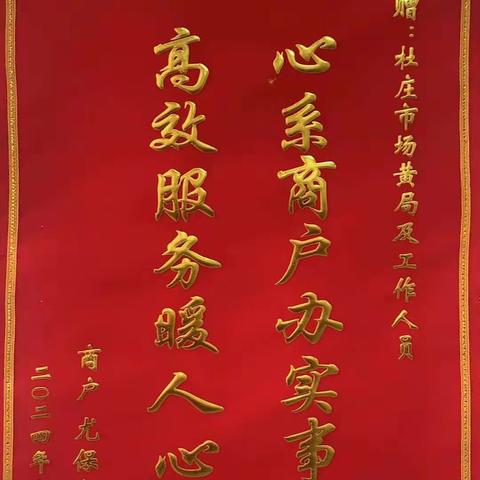 赠：杜庄市场黄局及工作人员
心系商户办实事
高效服务暖人心
商户尤保
二〇二四年